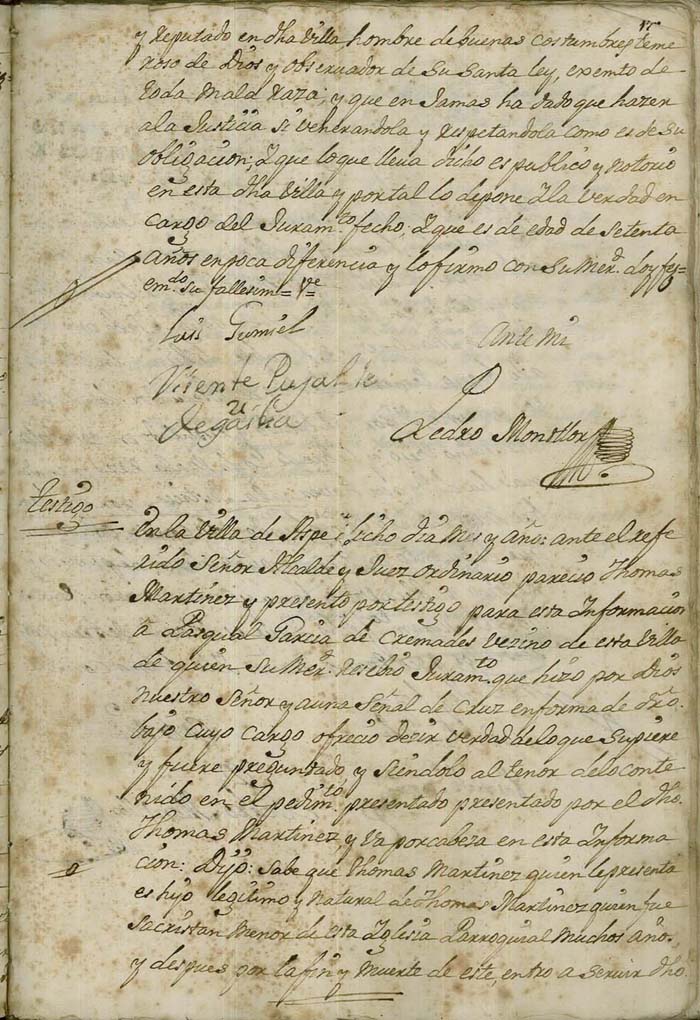 y Reputado en dha Villa hombre de buenas costumbres, teme
roso de Dios y observador de Su Santa ley, exempto de
toda mala Raza; y que en Jamas ha dado que hazer
ala Justicia si venerandola y Respetandola como es de Su
obligacion; Y que lo que lleva dicho es publico y notorio
en esta dha Villa y por tal lo depone Y la verdad en
cargo del Juramto. fecho; Y que es de edad de Setenta
Años en poca diferencia y lo firmo con Su Merd. doy fee=
emdo. su fallesim= Ve
Luis Gumiel
Ante Mi
Visente Pujalte
Degarcia
Pedro Montllor
Testigo
En la Villa de Aspe dicho dia Mes y Año: ante el refe
rido Señor Alcalde y Juez ordinario parecio Thomas
Martinez y presento por testigo para esta Informacion
â Pasqual Garcia de Cremades vezino de esta Villa
de quien Su Merd. Recibio Juramto. que hizo por Dios
Nuestro Señor y a una Señal de Cruz en forma de dro.
bajo cuyo cargo ofrecio dezir verdad de lo que Supiere
y fuere preguntado, y Siendolo al tenor delo conte
nido en el pedimto. presentado presentado por el dho.
Thomas Martinez, y va por cabeza en esta Informa
cion: Dijo: Sabe que Thomas Martinez quien le presenta
es hijo legitimo y natural de Thomas Martinez quien fue
Sacristan Menor de esta Yglesia Parroquial muchos Años,
y despues por la fin y muerte de este, entro a servir dho.